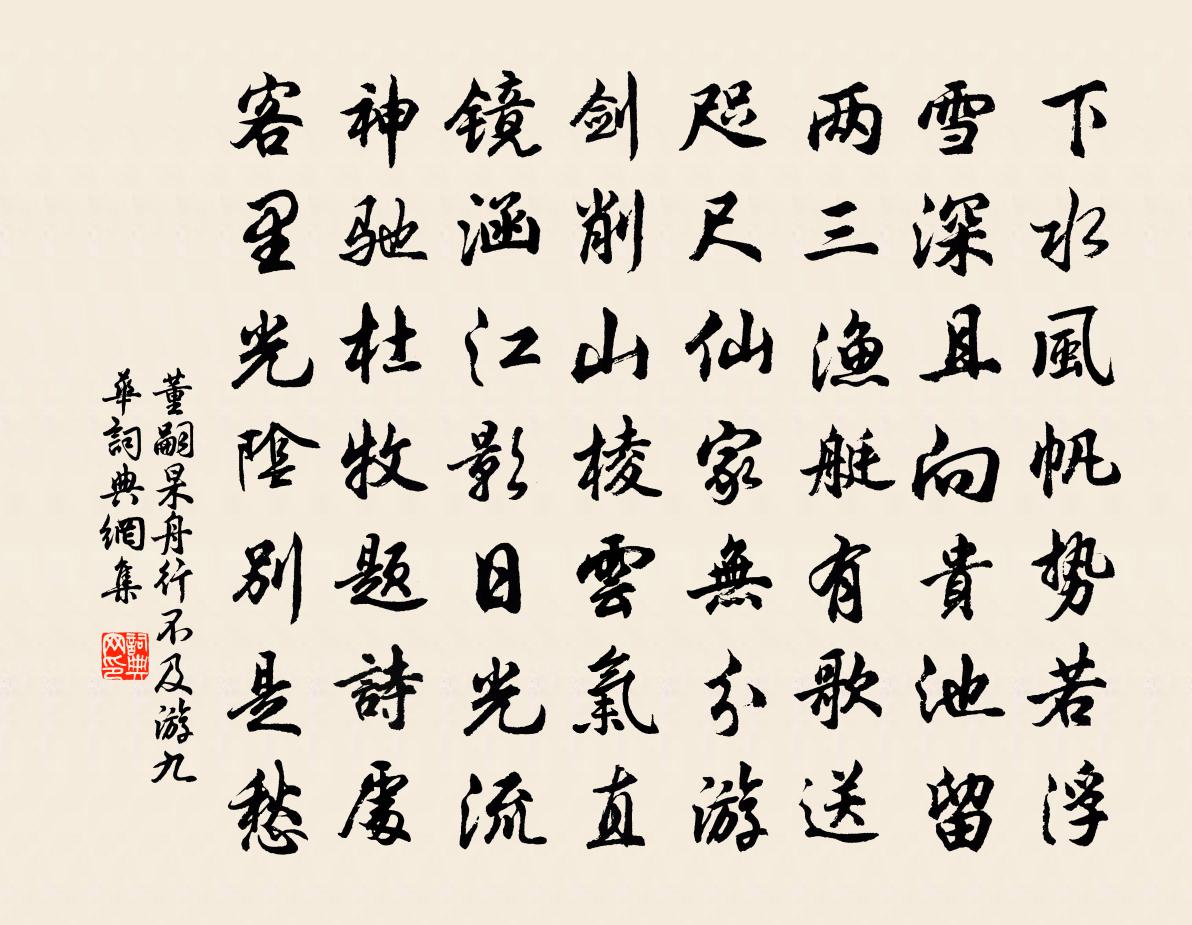 下水風帆势若浮
雪深且向貴池留
两三漁艇有歌送
咫尺仙家無分游
剑削山棱雲氣直
镜涵江影日光流
神驰杜牧题詩處
客里光陰别是愁
董嗣杲舟行不及游九
華詞典網集
詞典网印